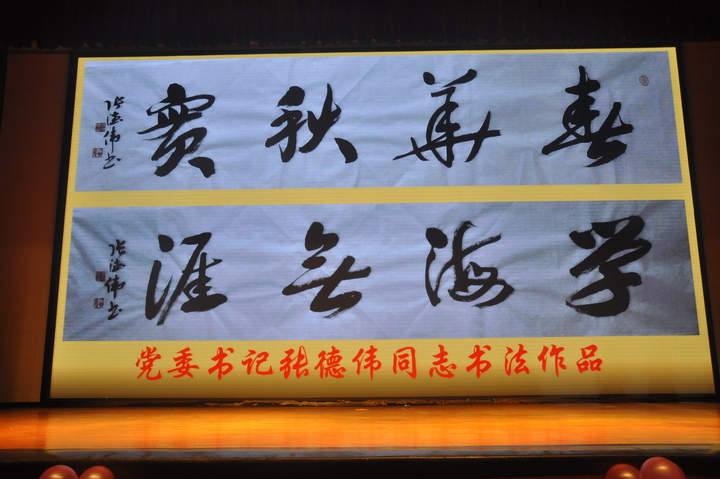 春華秋實
张德伟书
学海無涯
张德伟书
党委书记张德伟同志书法作品